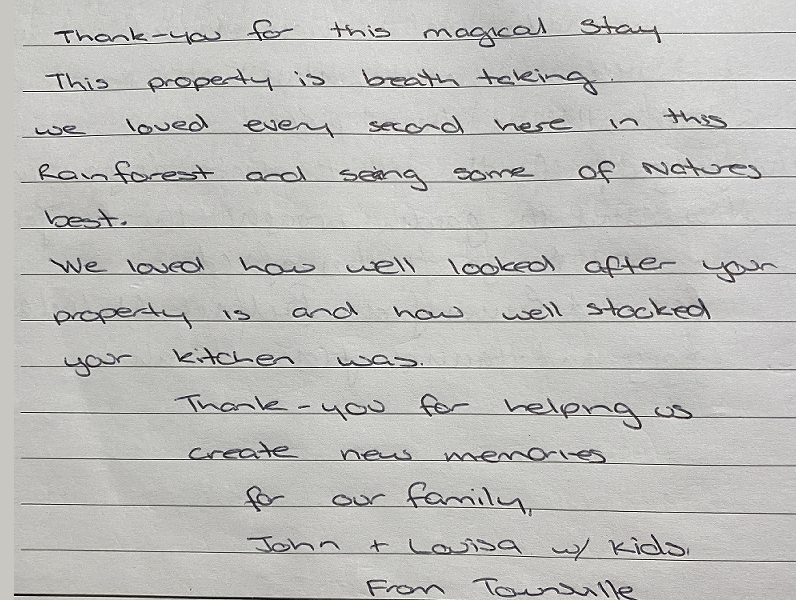 Thank-you for this magical stay
This property is breath taking.
we loved every second here in this
Rainforest and seeing some of Natures
best.
We loved how well looked after your
property is and how well stocked
your kitchen was.
Thank-you for helping us
create new memories
for our family,
John + Louisa w/ kids.
From Townsville